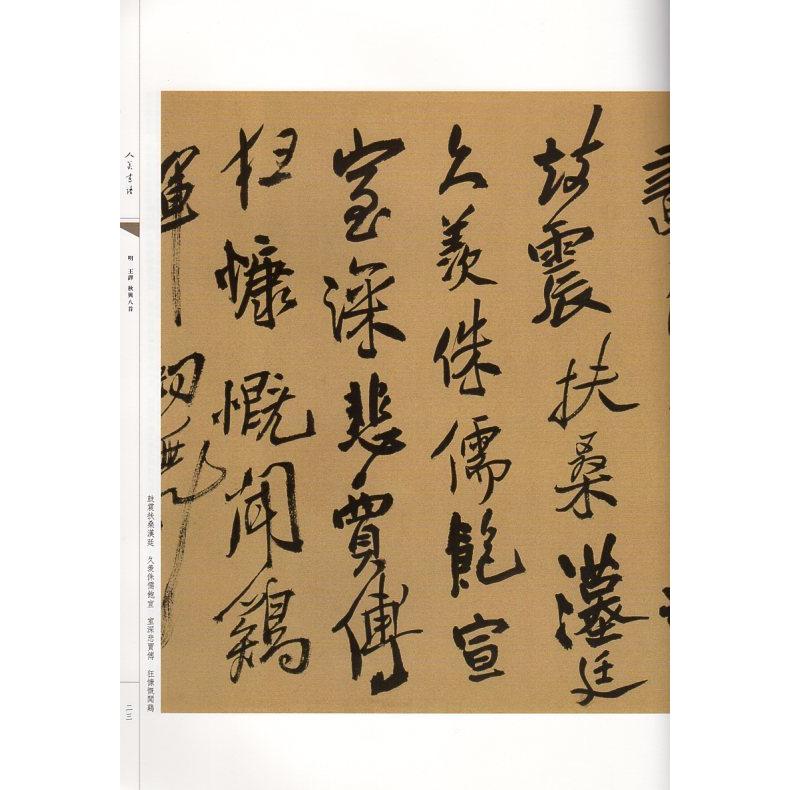 鼓震扶桑漢廷
久羨侏儒飽宣
室深悲賈傅
狂慷慨聞鷄
鼓震扶桑漢廷　久羨侏儒飽宣　室深悲賈傅　狂慷慨聞鷄
人美書譜
明　王鐸　秋興八首
二三